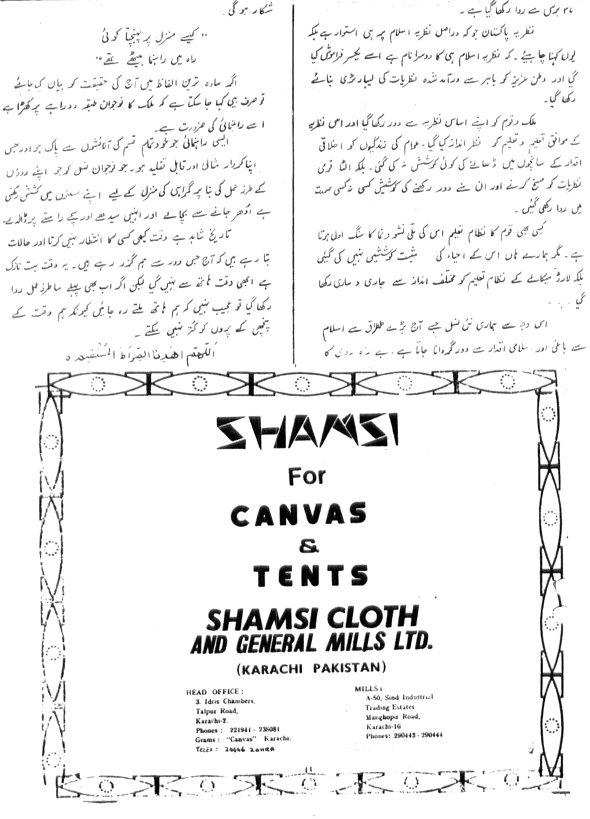 ۳۷ برس سے روا رکھا گیا ہے۔
نظریہ پاکستان جو کہ دراصل نظریہ اسلام پر ہی استوار ہے بلکہ
یوں کہنا چاہیئے۔ کہ نظریہ اسلام ہی کا دوسرا نام ہے اسے یکسر فراموش کیا
گیا اور وطن عزیز کو باہر سے درآمد شدہ نظریات کی لیبارٹری بنائے
رکھا گیا۔
ملک و قوم کو اپنے اساسی نظریہ سے دور رکھا گیا اور اس نظریہ
کے موافق تعلیم و تعلیم کو نظر انداز کیا گیا۔ عوام کی زندگیوں کو اخلاقی
اقدار کے سانچوں میں ڈھالنے کی کوئی کوشش نہ کی گئی۔ بلکہ الٹا قومی
نظریات کو مسخ کرنے اور ان سے دور رکھنے کی کوشیش کسی نہ کسی صورت
میں روا رکھی گئیں۔
کسی بھی قوم کا نظام تعلیم اس کی ملی نشو و نما کا سنگ اول ہوتا
ہے۔ مگر ہمارے ہاں اس کے احیاء کی مثبت کوششیں نہیں کی گئیں
بلکہ لارڈ میکالے کے نظام تعلیم کو مختلف انداز سے جاری و ساری رکھا
گیا ....
اس وجہ سے ہماری نئی نسل جسے آج بڑے طمطراق سے اسلام
سے باغی اور اسلامی اقدار سے دور گردانا جاتا ہے۔ بے راہ روی کا
شکار ہو گی۔
" کیسے منزل پر پہنچتا کوئی
راہ میں راہنما بیٹھے تھے"
اگر سادہ ترین الفاظ میں آج کی حقیقت کو بیان کیا جائے
تو صرف یہی کہا جا سکتا ہے کہ ملک کا نوجوان طبقہ دوراہے پر کھڑا ہے
اسے راہنمائی کی ضرورت ہے۔
ایسی راہنمائی جو خود تمام قسم کی آلائشوں سے پاک ہو اور جس
اپنا کردار مثالی اور قابل تقلید ہو۔ جو نوجوان نسل کو جو اپنے
کے طرز عمل کی بنا پر گمراہی کی منزل کے لیے اپنے سینوں میں کشش رکھتی
ہے ادھر جانے سے بچائے اور انہیں سیدھے اور سچے راستے پر ڈالدے۔
تاریخ شاہد ہے وقت کبھی کسی کا انتظار نہیں کرتا اور حالات
بتا رہے ہیں کہ آج جس دور سے ہم گزر رہے ہیں۔ یہ وقت بہت نازک
ہے ابھی وقت ہاتھ سے نہیں گیا لیکن اگر اب بھی پہلے سا طرز عمل روا
رکھا گیا تو عجیب نہیں کہ ہم ہاتھ ملتے رہ جائیں کیونکہ ہم وقت کے
پنچھی کے پروں کو کتر نہیں سکتے۔
اَللّٰھُمَّ اھْدِنَا الصِّرَاطَ الْمُسْتَقِیْمَ ہ
SHAMSI
For
CANVAS
&
TENTS
SHAMSI CLOTH
AND GENERAL MILLS LTD.
(KARACHI PAKISTAN)
HEAD OFFICE :
3. Idris Chambers,
Talpur Road,
Karachi-2.
Phones : 221941 - 238081
Grams : "Canvas" Karachi.
TELEX : 24446 ZOHRA
MILLS :
A-50, Sind Industrial
Trading Estates
Manghopir Road,
Karachi-16
Phones: 290443 - 290444